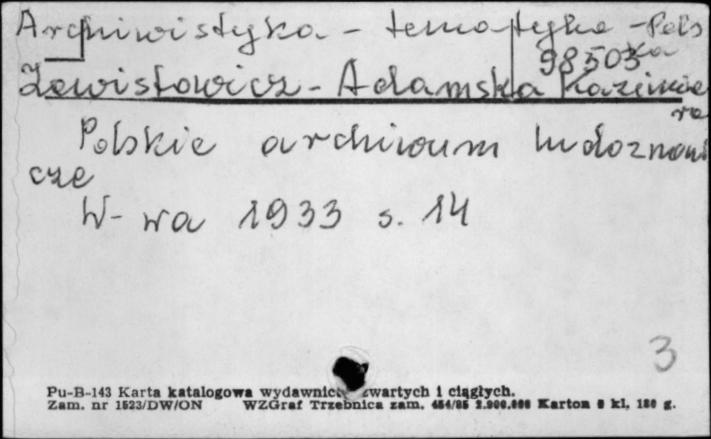 Archiwistyka - tematyka - Pols
ka
98503
Zawistowicz - Adamska Kazimie
ra
Polskie archiwum ludoznaw
cze
W-wa 1933 s. 14
3
Pu-B-143 Karta katalogowa wydawnictw zwartych i ciągłych.
Zam. nr 1523/DW/ON WZGraf Trzebnica zam. 454/85 2.900.000 Karton 8 kl. 180 g.